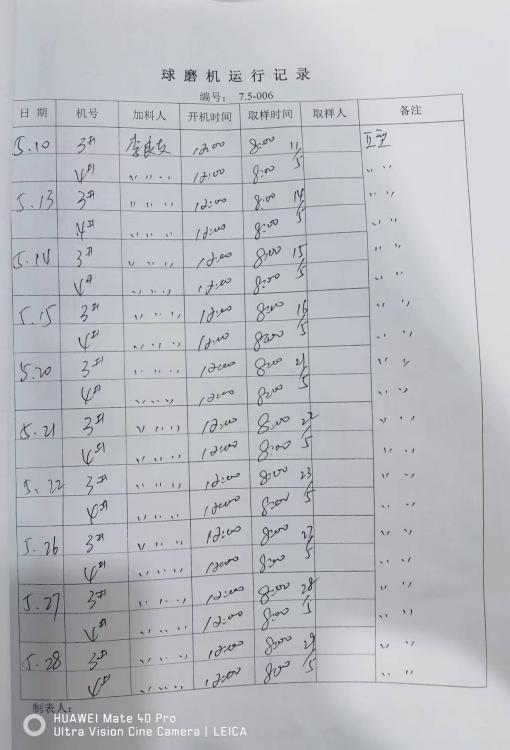 球磨机运行记录
编号： 7.5-006
日 期 机号 加料人 开机时间 取样时间 取样人 备注
5.10 3# 李 12:00 8:00 11/5
4# 〃 〃 〃 12:00 8:00 〃 〃
5.13 3# 〃 〃 〃 12:00 8:00 14/5 〃 〃
4# 〃 〃 〃 12:00 8:00 〃 〃
5.14 3# 〃 〃 〃 12:00 8:00 15/5 〃 〃
4# 〃 〃 〃 12:00 8:00 〃 〃
5.15 3# 〃 〃 〃 12:00 8:00 16/5 〃 〃
4# 〃 〃 〃 12:00 8:00 〃 〃
5.20 3# 〃 〃 〃 12:00 8:00 21/5 〃 〃
4# 〃 〃 〃 12:00 8:00 〃 〃
5.21 3# 〃 〃 〃 12:00 8:00 22/5 〃 〃
4# 〃 〃 〃 12:00 8:00 〃 〃
5.22 3# 〃 〃 〃 12:00 8:00 23/5 〃 〃
4# 〃 〃 〃 12:00 8:00 〃 〃
5.26 3# 〃 〃 〃 12:00 8:00 27/5 〃 〃
4# 〃 〃 〃 12:00 8:00 〃 〃
5.27 3# 〃 〃 〃 12:00 8:00 28/5 〃 〃
4# 〃 〃 〃 12:00 8:00 〃 〃
5.28 3# 〃 〃 〃 12:00 8:00 29/5 〃 〃
4# 〃 〃 〃 12:00 8:00 〃 〃
制表人：
HUAWEI Mate 40 Pro
Ultra Vision Cine Camera | LEICA